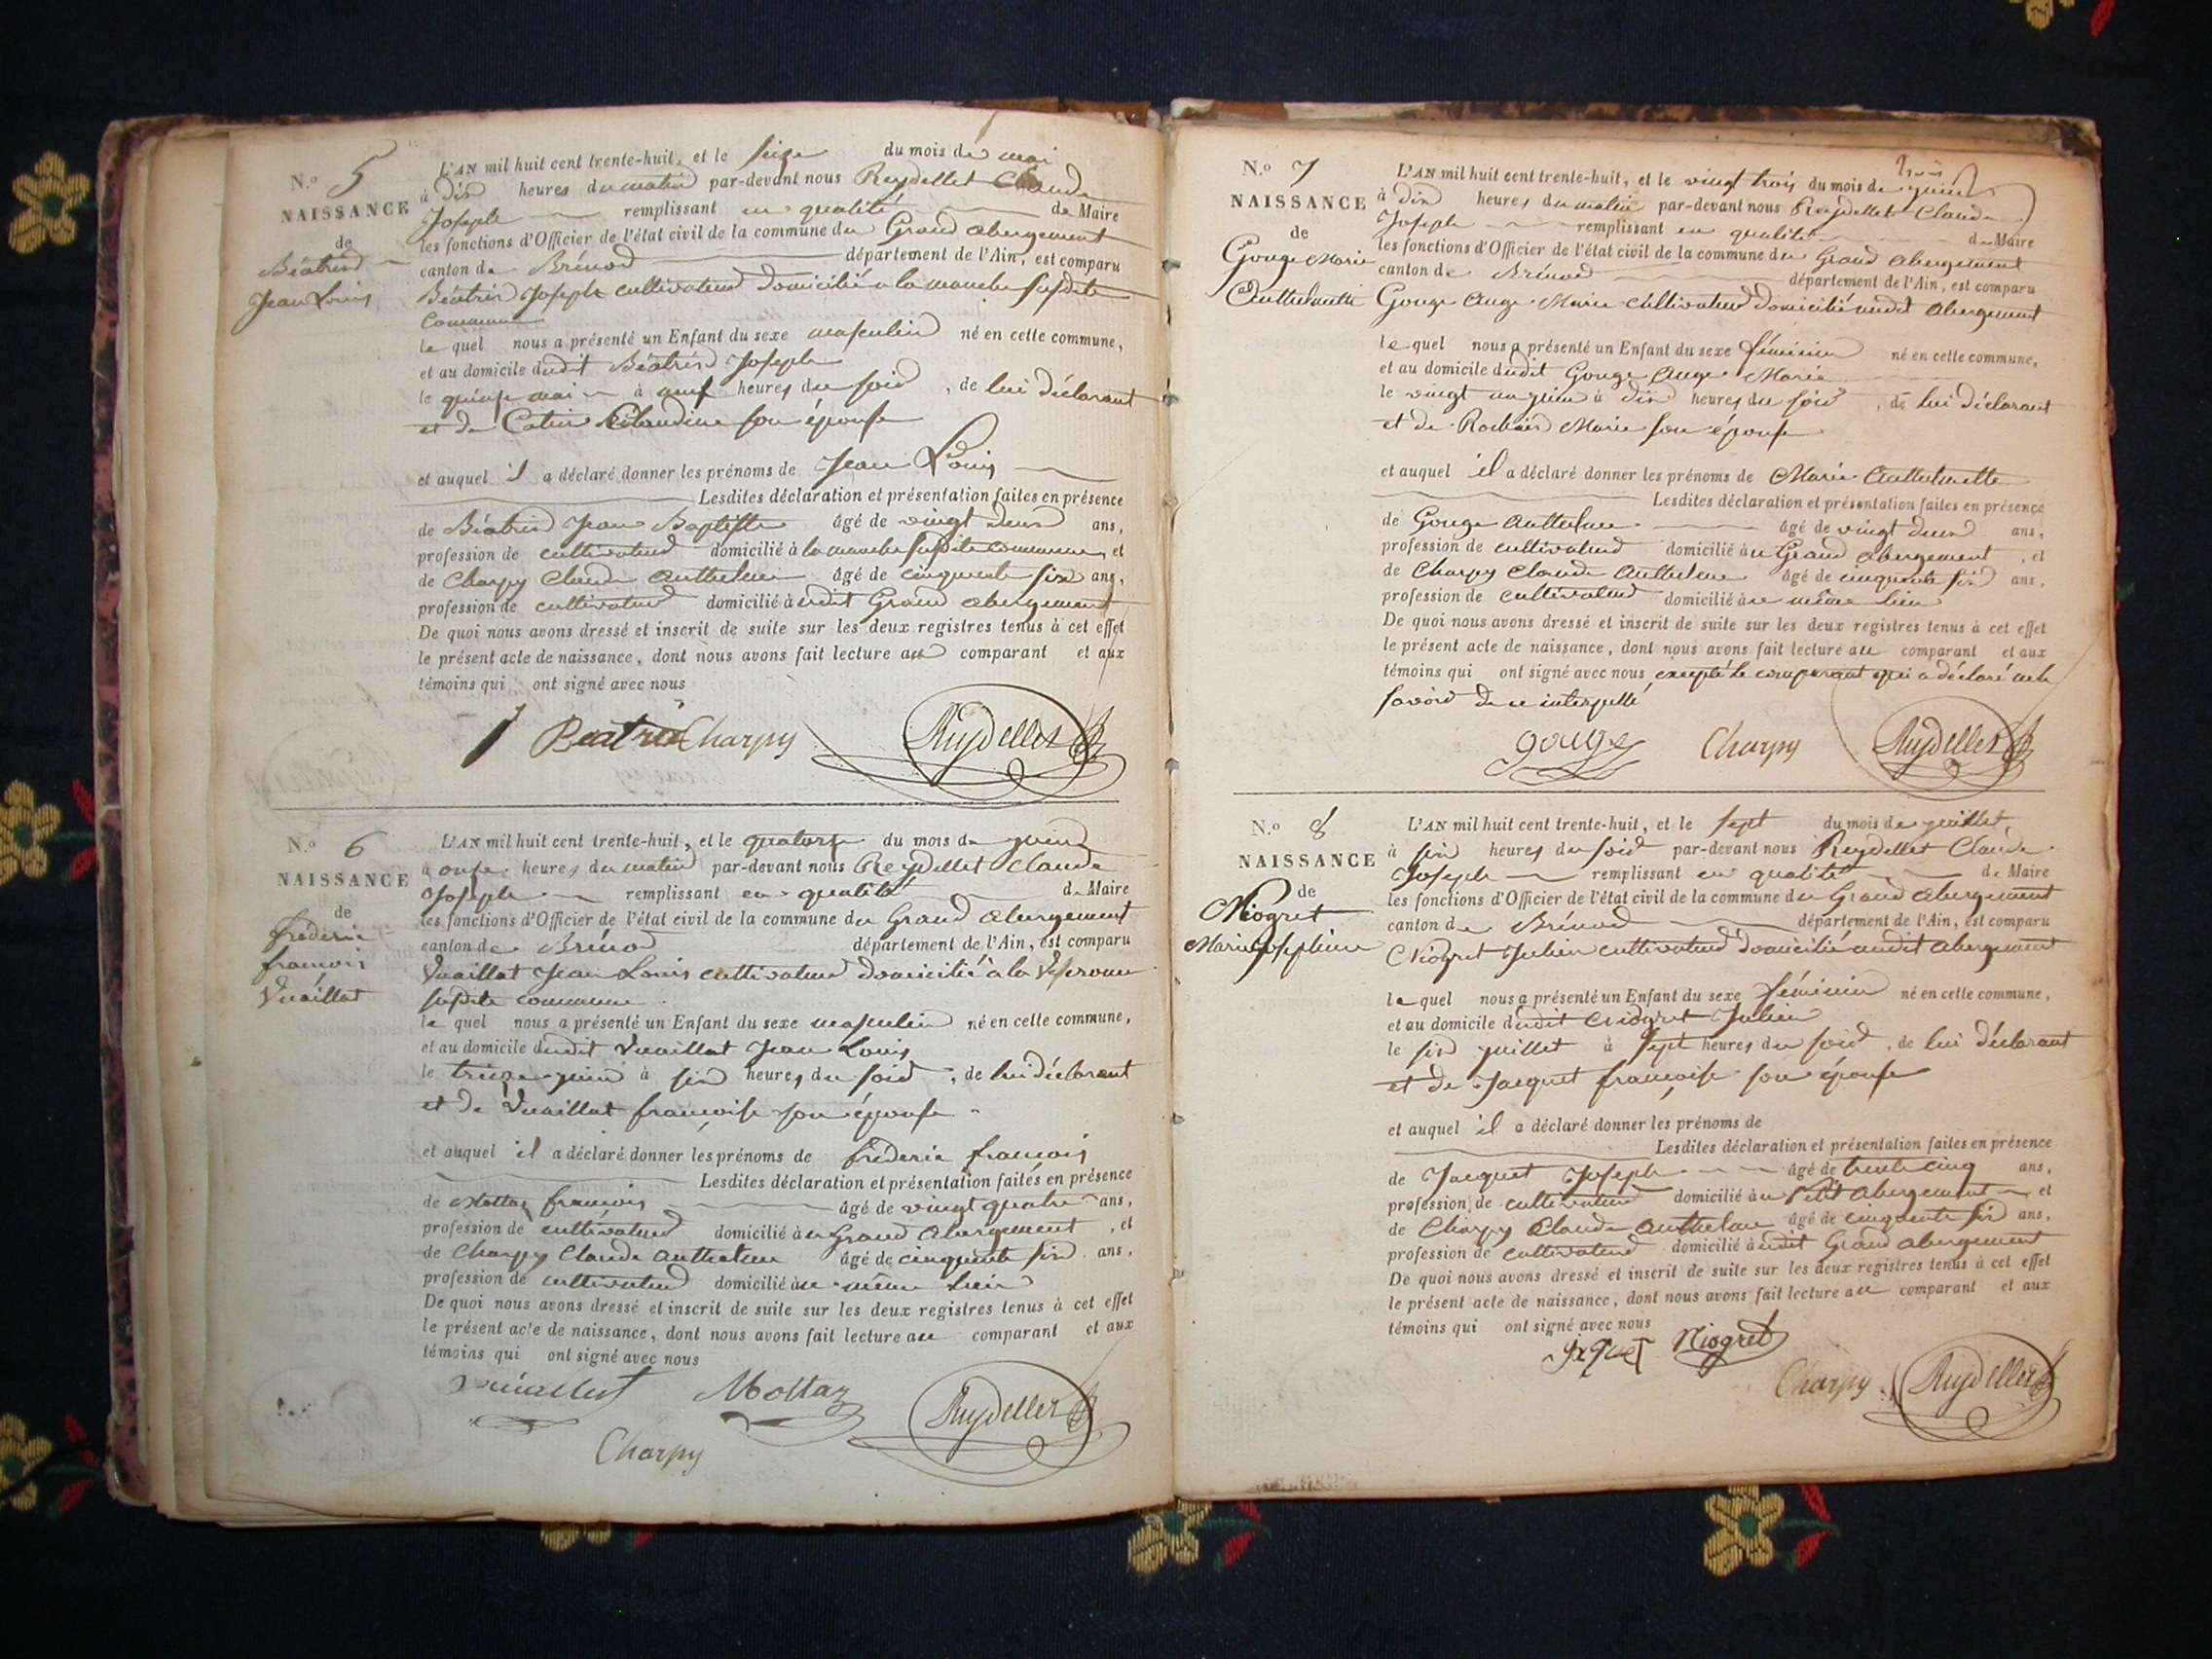 N.o 5
NAISSANCE
de
Béatrix
Jean Louis
L'AN mil huit cent trente-huit, et le seize du mois de mai
à dix heures du matin par-devant nous Reydellet Claude
Joseph remplissant en qualité de Maire
les fonctions d'Officier de l'état civil de la commune du Grand abergement
canton de Brénod département de l'Ain, est comparu
Béatrix Joseph cultivateur domicilié a la manche susdite
Commune
le quel nous a présenté un Enfant du sexe masculin né en cette commune,
et au domicile dudit Béatrix Joseph
le quinze mai à neuf heures du soir, de lui déclarant
et de Catin Claudine son épouse
et auquel il a déclaré donner les prénoms de Jean Louis
Lesdites déclaration et présentation faites en présence
de Béatrix Jean Baptiste âgé de vingt deux ans,
profession de cultivateur domicilié à la manche susdite commune, et
de Charpy Claude Anthelme âgé de cinquante six ans,
profession de cultivateur domicilié à udit Grand abergement
De quoi nous avons dressé et inscrit de suite sur les deux registres tenus à cet effet
le présent acte de naissance, dont nous avons fait lecture au comparant et aux
témoins qui ont signé avec nous
Beatrix Charpy Reydellet
N.o 6
NAISSANCE
de
fréderic
francois
Vuaillat
L'AN mil huit cent trente-huit, et le quatorze du mois de juin
à onze heures du matin par-devant nous Reydellet Claude
Joseph remplissant en qualité de Maire
les fonctions d'Officier de l'état civil de la commune du Grand abergement
canton de Brénod département de l'Ain, est comparu
Vuaillat Jean Louis cultivateur domicilié à la
susdite commune
le quel nous a présenté un Enfant du sexe masculin né en cette commune,
et au domicile dudit Vuaillat Jean Louis
le treize juin à six heures du soir, de lui déclarant
et de Vuaillat françoise son épouse
et auquel il a déclaré donner les prénoms de fréderic francois
Lesdites déclaration et présentation faites en présence
de Mottaz françois âgé de vingt quatre ans,
profession de cultivateur domicilié à u Grand Abergement, et
de Charpy Claude Anthelme âgé de cinquante six ans,
profession de cultivateur domicilié à u même lieu
De quoi nous avons dressé et inscrit de suite sur les deux registres tenus à cet effet
le présent acte de naissance, dont nous avons fait lecture au comparant et aux
témoins qui ont signé avec nous
Vuaillat Mottaz Reydellet
Charpy
N.o 7
NAISSANCE
de
Gouge Marie
Anthelmette
L'AN mil huit cent trente-huit, et le vingt trois du mois de juin
à dix heures du matin par-devant nous Reydellet Claude
Joseph remplissant en qualité de Maire
les fonctions d'Officier de l'état civil de la commune du Grand abergement
canton de Brénod département de l'Ain, est comparu
Gouge Ange Marie cultivateur domicilié audit abergement
le quel nous a présenté un Enfant du sexe féminin né en cette commune,
et au domicile dudit Gouge Ange Marie
le vingt un juin à dix heures du soir, de lui déclarant
et de Marie son épouse
et auquel il a déclaré donner les prénoms de Marie Anthelmette
Lesdites déclaration et présentation faites en présence
de Gouge Anthelme âgé de vingt deux ans,
profession de cultivateur domicilié à u Grand abergement, et
de Charpy Claude Anthelme âgé de cinquante six ans,
profession de cultivateur domicilié à u même lieu
De quoi nous avons dressé et inscrit de suite sur les deux registres tenus à cet effet
le présent acte de naissance, dont nous avons fait lecture au comparant et aux
témoins qui ont signé avec nous excepté le comparant qui a déclaré ne le
savoir de ce interpellé
gouge Charpy Reydellet
N.o 8
NAISSANCE
de
Niogret
Marie Josephine
L'AN mil huit cent trente-huit, et le sept du mois de juillet,
à six heures du soir par-devant nous Reydellet Claude
Joseph remplissant en qualité de Maire
les fonctions d'Officier de l'état civil de la commune du Grand abergement
canton de Brénod département de l'Ain, est comparu
Niogret Julien cultivateur domicilié audit abergement
le quel nous a présenté un Enfant du sexe féminin né en cette commune,
et au domicile dudit Niogret Julien
le six juillet à sept heures du soir, de lui déclarant
et de Jacquet françoise son épouse
et auquel il a déclaré donner les prénoms de
Lesdites déclaration et présentation faites en présence
de Jacquet Joseph âgé de trente cinq ans,
profession de cultivateur domicilié à u Petit Abergement et
de Charpy Claude Anthelme âgé de cinquante six ans,
profession de cultivateur domicilié à udit Grand abergement
De quoi nous avons dressé et inscrit de suite sur les deux registres tenus à cet effet
le présent acte de naissance, dont nous avons fait lecture au comparant et aux
témoins qui ont signé avec nous
Niogret
Charpy Reydellet